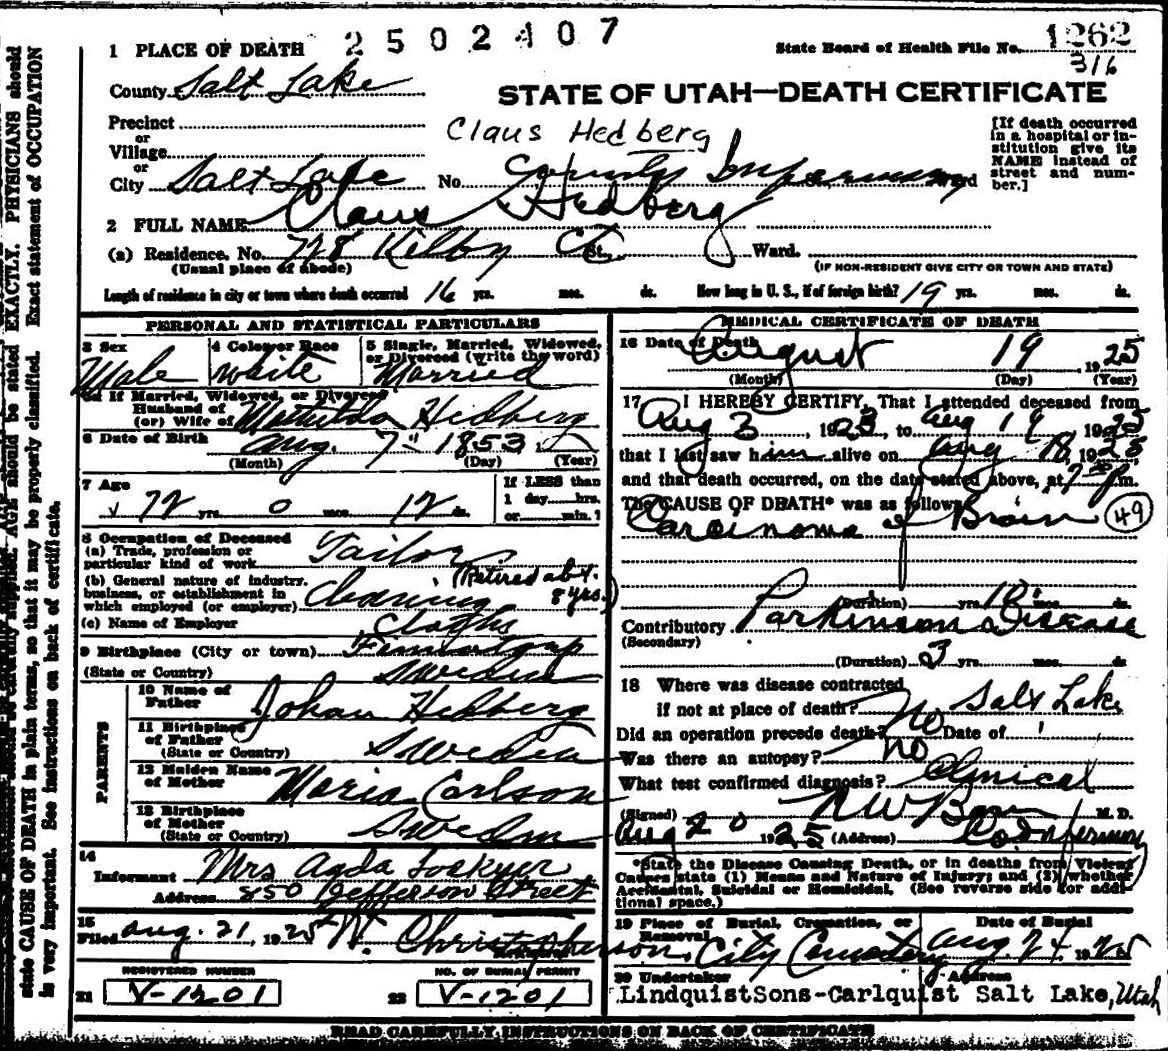 1 PLACE OF DEATH 2502407 State Board of Health File No. 1262
316
County Salt Lake
STATE OF UTAH—DEATH CERTIFICATE
Precinct
or
Village
or
City Salt Lake No. County Infirmary Ward
Claus Hedberg
[If death occurred
in a hospital or in-
stitution give its
NAME instead of
street and num-
ber.]
2 FULL NAME Claus Hedberg
(a) Residence. No. 728 Kilby Ct St. Ward.
(Usual place of abode) (IF NON-RESIDENT GIVE CITY OR TOWN AND STATE)
Length of residence in city or town where death occurred 16 yrs. mos. ds. How long in U. S., if of foreign birth? 19 yrs. mos. ds.
PERSONAL AND STATISTICAL PARTICULARS
3 Sex 4 Color or Race 5 Single, Married, Widowed,
or Divorced (write the word)
Male white Married
5a If Married, Widowed, or Divorced
Husband of
(or) Wife of Matilda Hedberg
6 Date of Birth Aug. 7" 1853
(Month) (Day) (Year)
7 Age If LESS than
1 day hrs.
or min.?
72 yrs. 0 12 ds.
8 Occupation of Deceased
(a) Trade, profession or
particular kind of work Tailor
(b) General nature of industry,
business, or establishment in
which employed (or employer) Cleaning (Retired abt. 8 yrs.)
(c) Name of Employer Cloths
9 Birthplace (City or town)
(State or Country) Sweden
PARENTS
10 Name of
Father Johan Hedberg
11 Birthplace
of Father
(State or Country) Sweden
12 Maiden Name
of Mother Maria Carlson
13 Birthplace
of Mother
(State or Country) Sweden
14
Informant Mrs Agda Lockyer
Address 850 Jefferson Street
15
Filed Aug. 21, 1925 W. Christopherson
REGISTERED NUMBER NO. OF BURIAL PERMIT
21 V-1201 22 V-1201
MEDICAL CERTIFICATE OF DEATH
16 Date of Death August 19, 1925
(Month) (Day) (Year)
17 I HEREBY CERTIFY, That I attended deceased from
Aug 3, 1923, to Aug 19, 1925
that I last saw him alive on Aug 18, 1925
and that death occurred, on the date stated above, at 7 p.m.
The CAUSE OF DEATH* was as follows:
Carcinoma of Brain 49
(Duration) yrs. 18 mos. ds.
Contributory Parkinsons Disease
(Secondary)
(Duration) 3 yrs. mos. ds
18 Where was disease contracted
if not at place of death? Salt Lake
Did an operation precede death? No Date of
Was there an autopsy? no
What test confirmed diagnosis? Clinical
(Signed) M. D.
Aug 20 1925 (Address) Co. Infirmary
*State the Disease Causing Death, or in deaths from Violent
Causes state (1) Means and Nature of Injury; and (2) whether
Accidental, Suicidal or Homicidal. (See reverse side for addi-
tional space.)
19 Place of Burial, Cremation, or
Removal Date of Burial
City Cemetery Aug. 24 1925
20 Undertaker Address
LindquistSons-Carlquist Salt Lake, Utah
READ CAREFULLY INSTRUCTIONS ON BACK OF CERTIFICATE
AGE should be stated EXACTLY. PHYSICIANS should
state CAUSE OF DEATH in plain terms, so that it may be properly classified. Exact statement of OCCUPATION
is very important. See instructions on back of certificate.